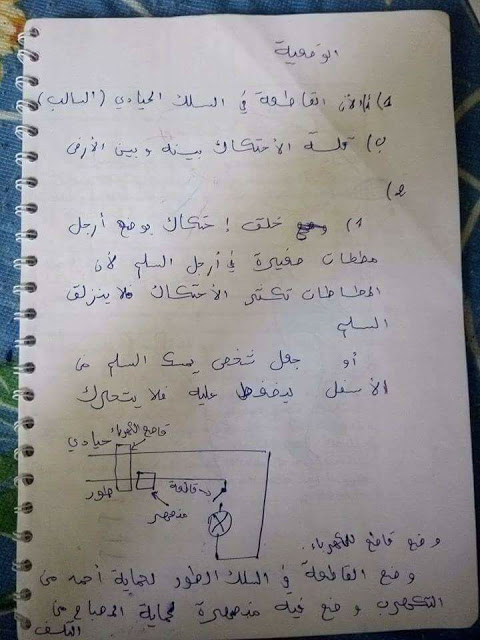 الوضعية
1) أ) لأن القاطعة في السلك الحيادي (السالب)
ب) قلة الاحتكاك بينه وبين الأرض
2)
1) خلق إحتكاك بوضع أرجل
مطاطات صغيرة في أرجل السلم لأن
المطاطات تكثر الأحتكاك فلا ينزلق
السلم
أو جعل شخص يمسك السلم من
الأسفل ليضغط عليه فلا يتحرك
قاطع الكهرباء
حيادي
طور
قاطعة
منصهر
وضع قاطع للكهرباء.
وضع القاطعة في السلك الطور لحماية أحمد من
التكهرب وضع فيه منصهرة لحماية المصباح من
التلف